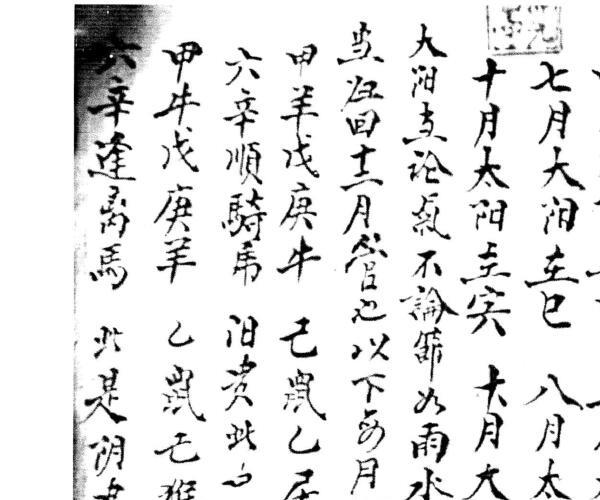 七月大阳在巳 八月太
十月太阳在寅 十月大
大阳在论氣不論節如雨水
回十二月管也以下每月
甲羊戊庚牛 己鼠乙
六辛順騎虎 阳贵此
甲牛戊庚羊 乙鼠己猴
六辛逢离馬 此是阴